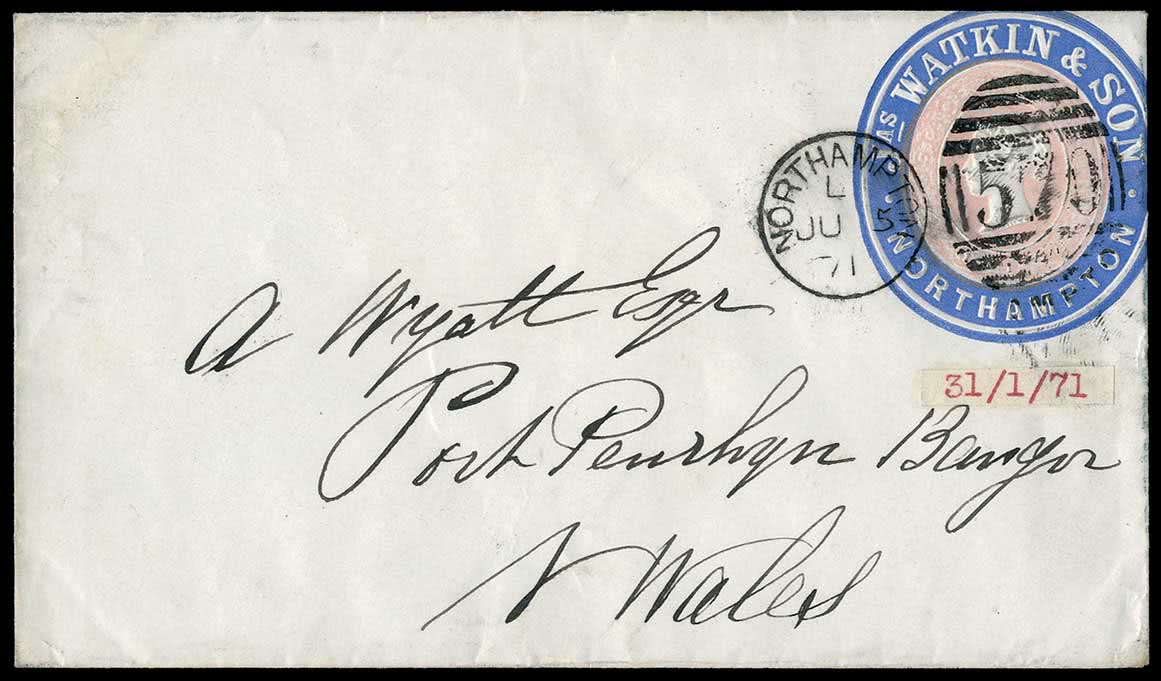 THO.AS WATKIN & SON.
NORTHAMPTON
NORTHAMPTON
L
JU 5
71
A Wyatt Esqr
31/1/71
Port Penrhyn Bangor
N Wales